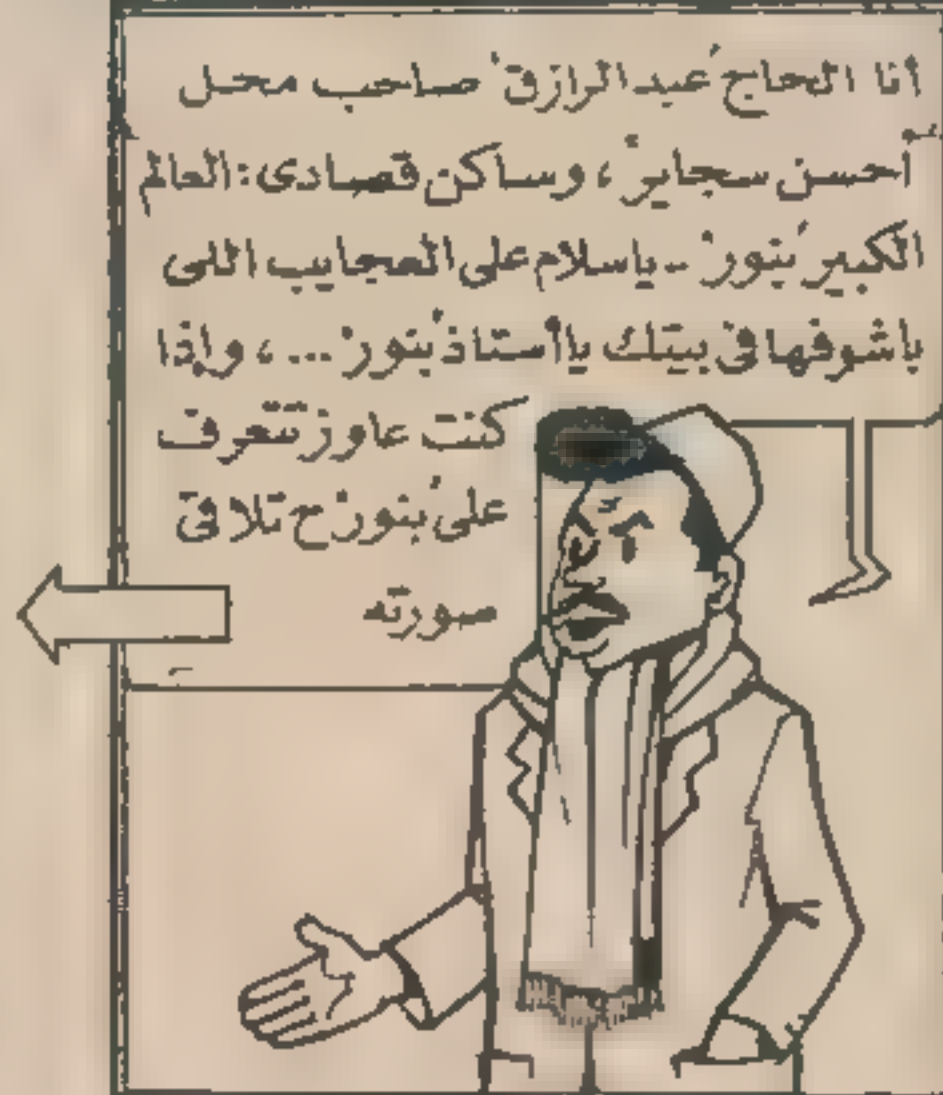 أنا الحاج "عبد الرازق" صاحب محل
"أحسن سجاير"، وساكن قصادى: العالم
الكبير "بنور" - ياسلام على العجايب اللى
باشوفها فى بيتك ياأستاذ "بنور"...، وإذا
كنت عاوز تتعرف
على "بنور" ح تلاقى
صورته